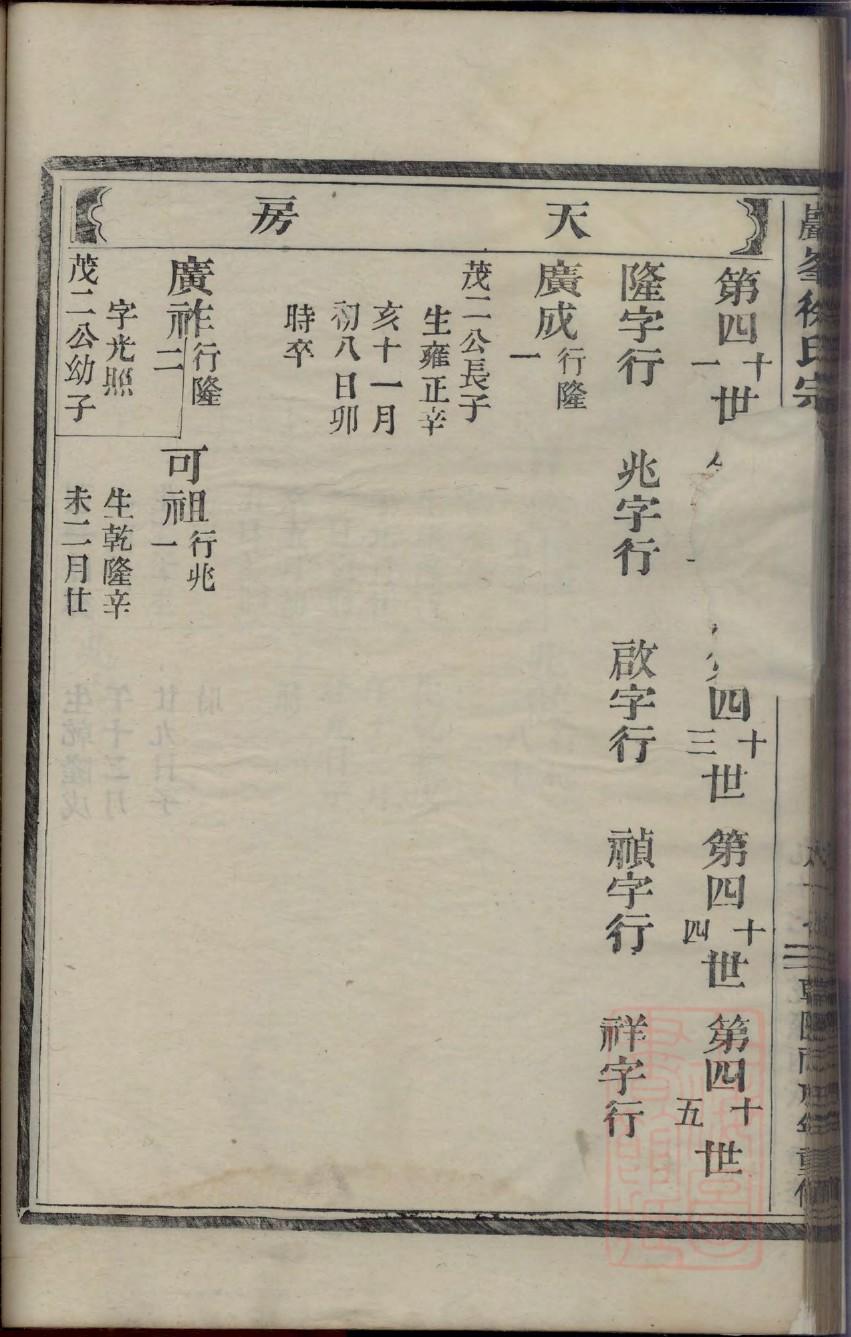 巖峯徐氏宗
天房
第四十一世
隆字行
兆字行
四十三世
啟字行
第四十四世
禎字行
第四十五世
祥字行
廣成行隆一
茂二公長子
生雍正辛
亥十一月
初八日卯
時卒
廣祚行隆二
字光照
茂二公幼子
可祖行兆一
生乾隆辛
未二月廿